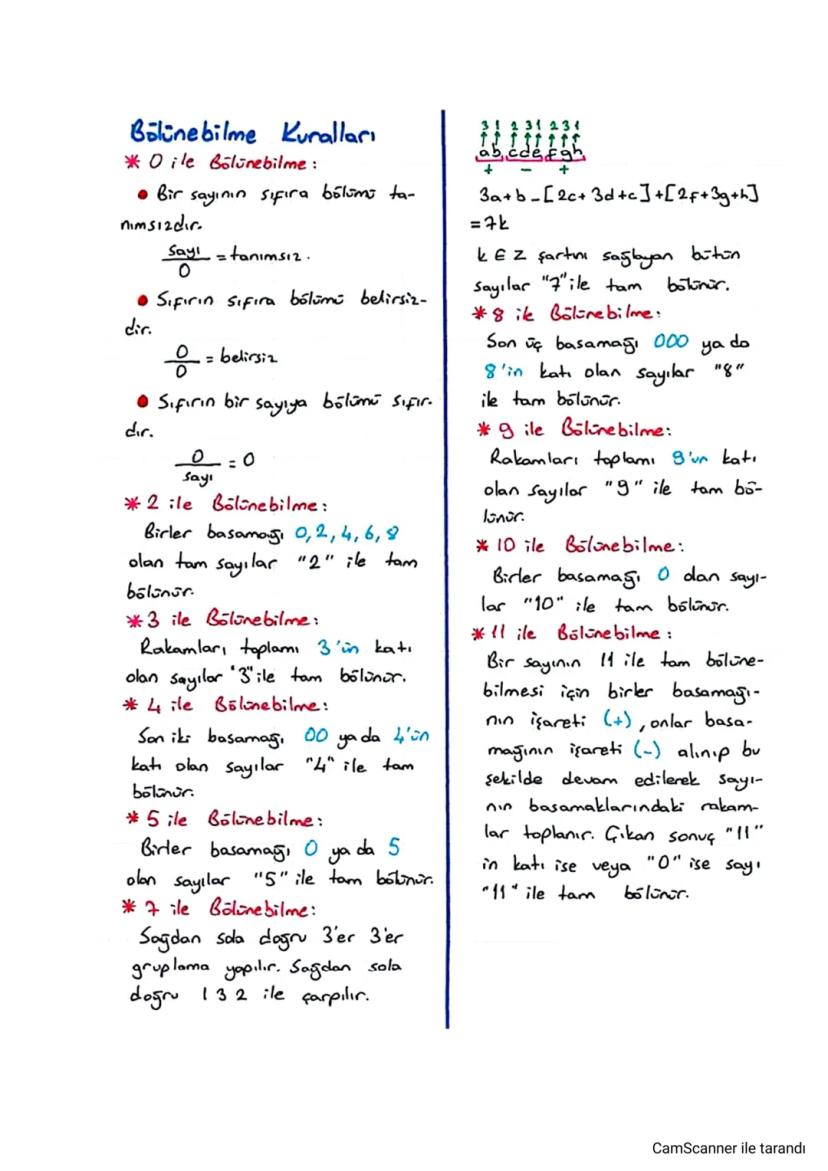 Bölünebilme Kuralları
* 0 ile Bölünebilme:
• Bir sayının sıfıra bölümü ta-
nımsızdır.
sayı/0 = tanımsız.
• Sıfırın sıfıra bölümü belirsiz-
dir.
0/0 = belirsiz
• Sıfırın bir sayıya bölümü sıfır-
dır.
0/sayı = 0
* 2 ile Bölünebilme:
Birler basamağı 0,2,4,6,8
olan tam sayılar "2" ile tam
bölünür.
* 3 ile Bölünebilme:
Rakamları toplamı 3'ün katı
olan sayılar "3" ile tam bölünür.
* 4 ile Bölünebilme:
Son iki basamağı 00 ya da 4'ün
katı olan sayılar "4" ile tam
bölünür.
* 5 ile Bölünebilme:
Birler basamağı 0 ya da 5
olan sayılar "5" ile tam bölünür.
* 7 ile Bölünebilme:
Sağdan sola doğru 3'er 3'er
gruplama yapılır. Sağdan sola
doğru 1 3 2 ile çarpılır.
3 1 2 3 1 2 3 1
ab cde fgh
+ - +
3a+b-[2c+3d+e]+[2f+3g+h]
=7k
k ∈ Z şartını sağlayan bütün
sayılar "7" ile tam bölünür.
* 8 ile Bölünebilme:
Son üç basamağı 000 ya da
8'in katı olan sayılar "8"
ile tam bölünür.
* 9 ile Bölünebilme:
Rakamları toplamı 9'un katı
olan sayılar "9" ile tam bö-
lünür.
* 10 ile Bölünebilme:
Birler basamağı 0 olan sayı-
lar "10" ile tam bölünür.
* 11 ile Bölünebilme:
Bir sayının 11 ile tam bölüne-
bilmesi için birler basamağı-
nın işareti (+), onlar basa-
mağının işareti (-) alınıp bu
şekilde devam edilerek sayı-
nın basamaklarındaki rakam-
lar toplanır. Çıkan sonuç "11"
in katı ise veya "0" ise sayı
"11" ile tam bölünür.
CamScanner ile tarandı